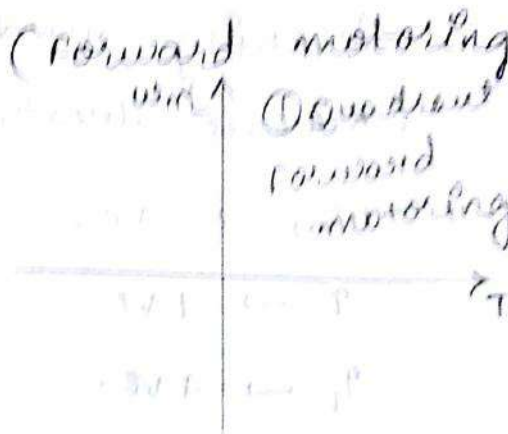 (Forward motoring
① Quadrant
Forward
motoring
T